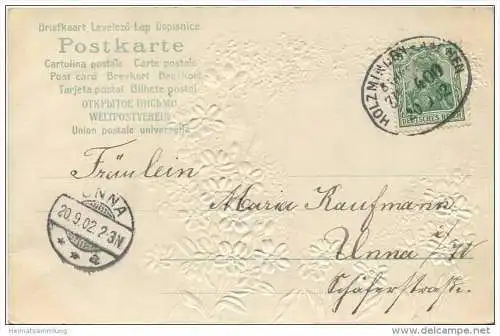 Briefkaart Levelező-Lap Dopisnice
Postkarte
Cartolina postale Carte postale
Post card Brevkort Brefkort
Tarjeta postal Bilhete postal
ОТКРЫТОЕ ПИСЬМО
WELTPOSTVEREIN
Union postale universelle
HOLZMINDEN-AACHEN
400
DEUTSCHES REICH
Fräulein
Maria Kaufmann
Unna i/W
Schäferstraße.
UNNA
20.9.02.2-3N
* * a
Heimatsammlung.de